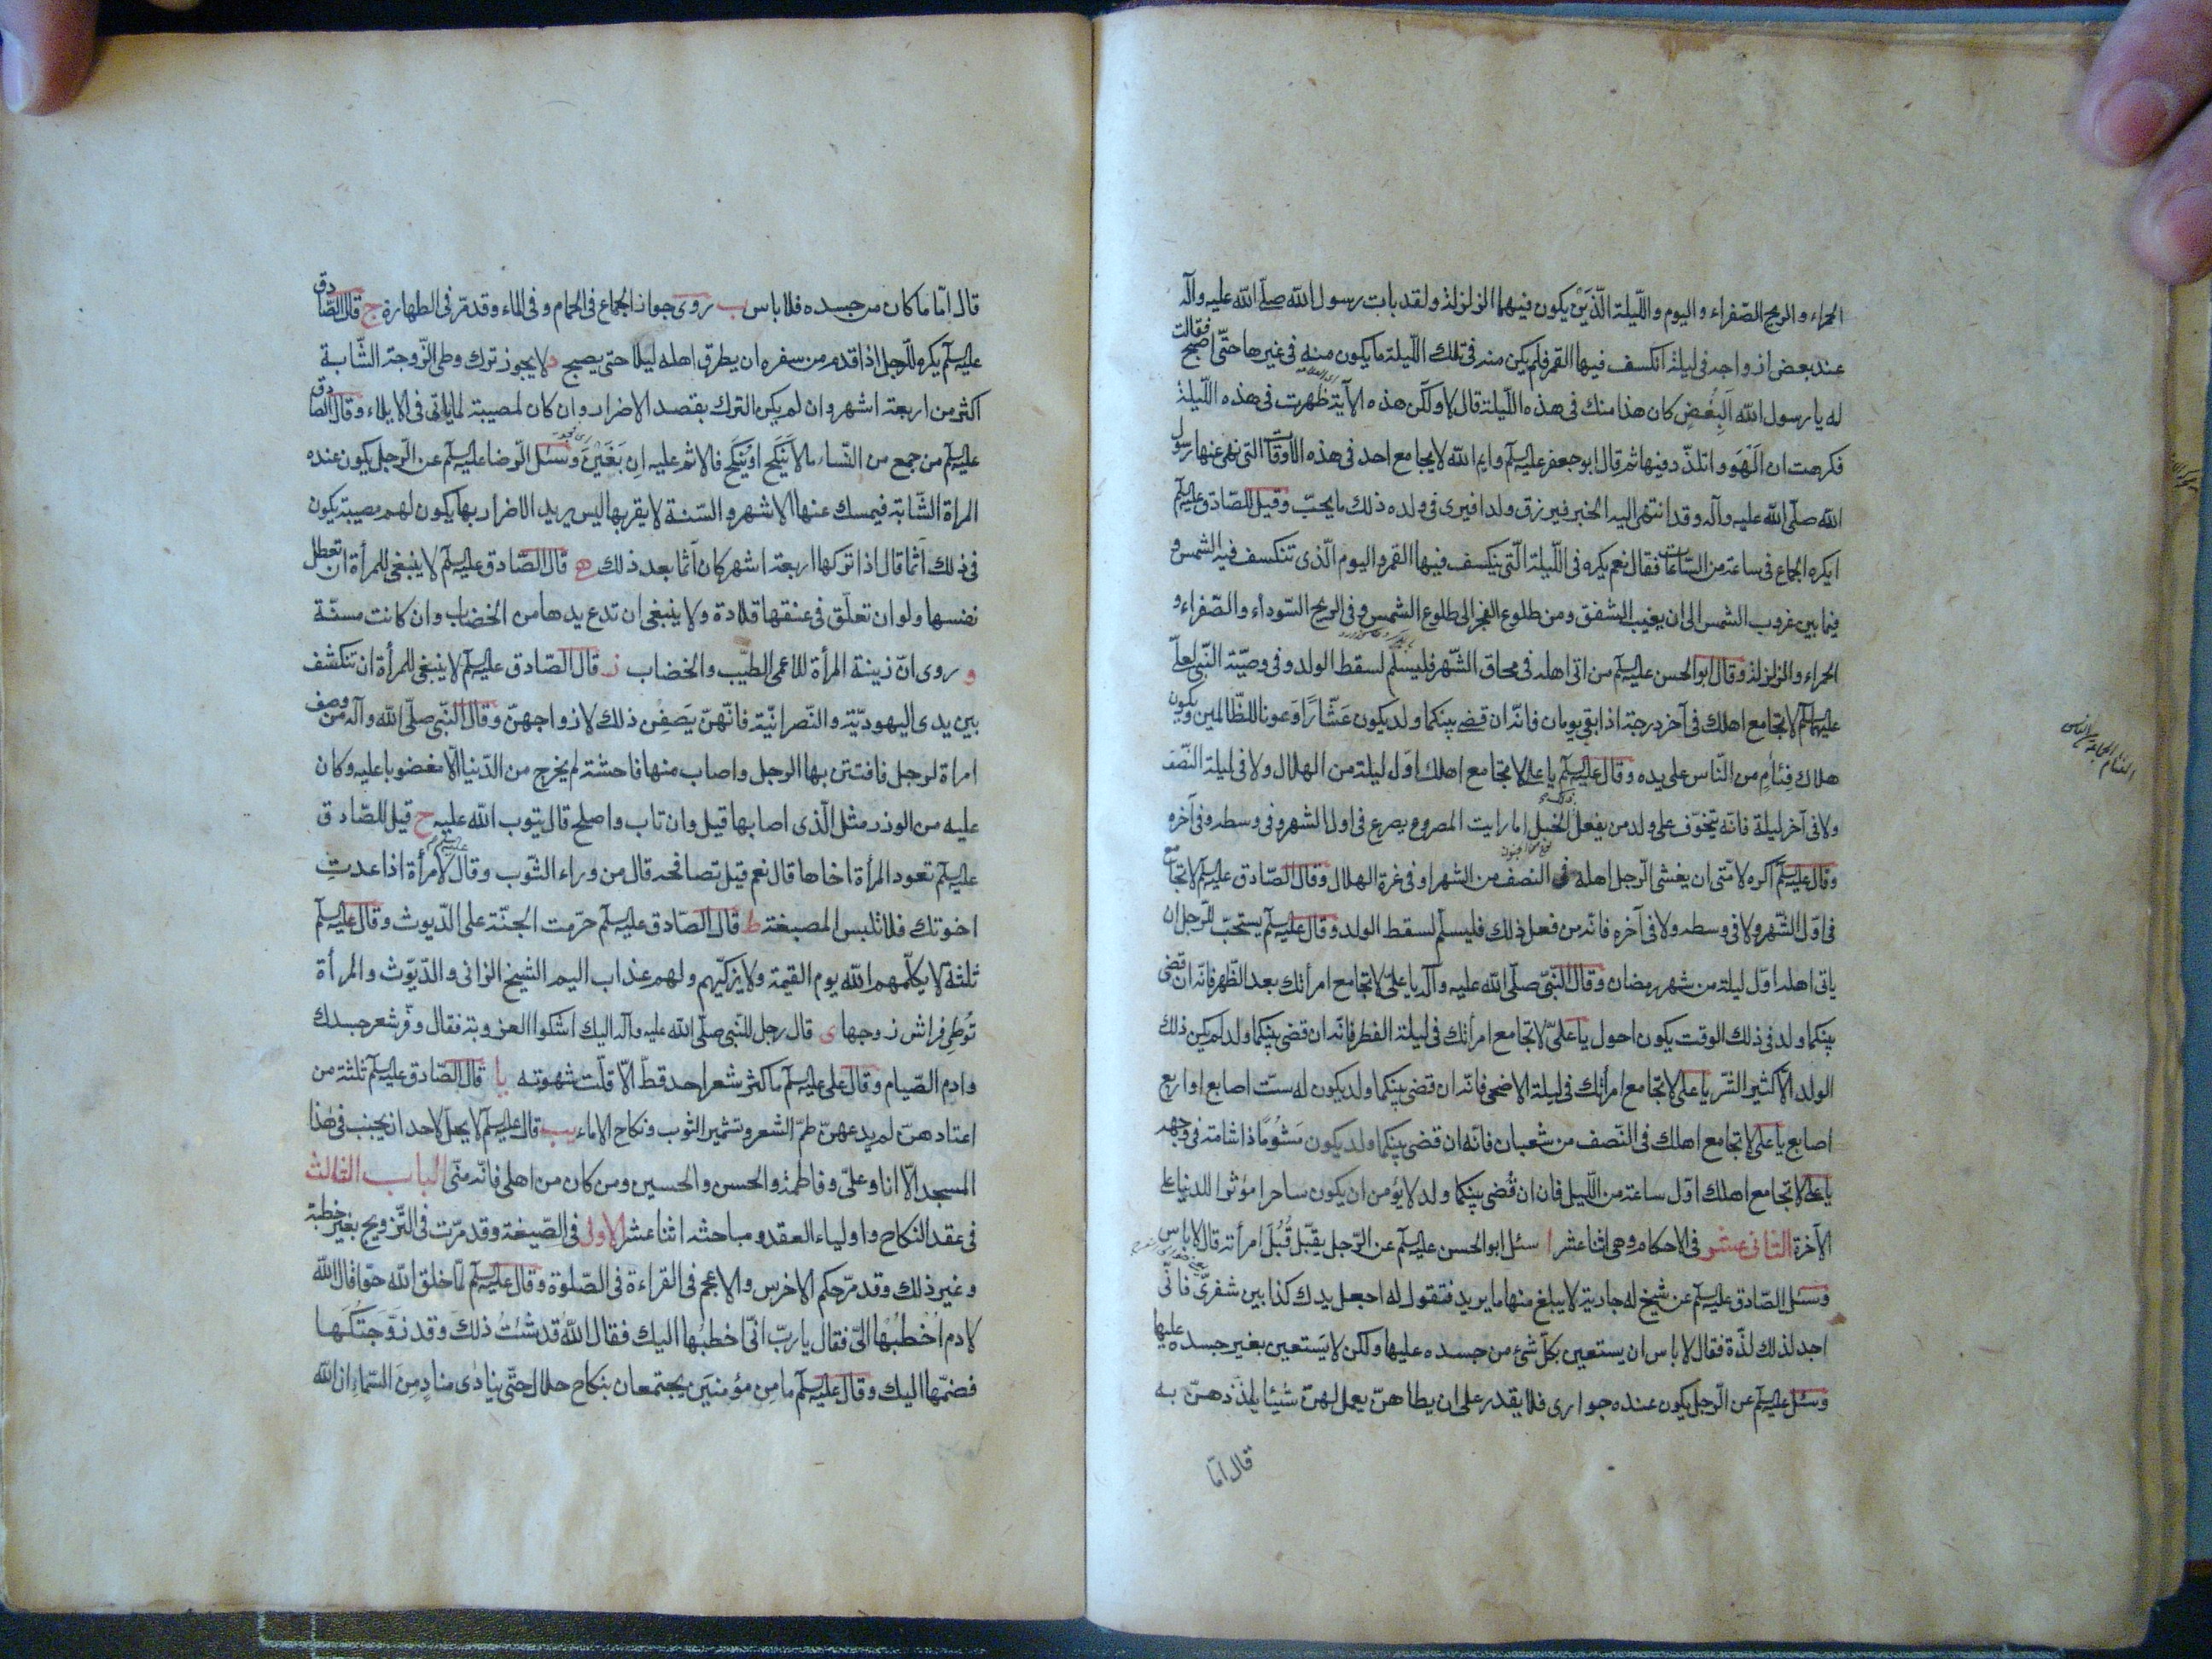 الحمراء و الريح الصّفراء و اليوم و اللّيلة الّذَيْنِ يكون فيهما الزلزلة ولقد بات رسول الله صلّى الله عليه وآله
عند بعض ازواجه فى ليلة انكسف فيها القمر فلم يكن منه فى تلك اللّيلة ما يكون منه فى غيرها حتّى اصبح فقالت
له يا رسول الله اَلِبُغْضٍ كان هذا منك فى هذه اللّيلة قال لا ولكّن هذه الآية ظهرت فى هذه اللّيلة
فكرهت ان اَلْهَوَ و اتلذّذ فيها ثم قال ابوجعفر عليه‌السلم وايم الله لا يجامع احد فى هذه الاوقات التى نهى عنها رسول
الله صلّى الله عليه وآله وقد انتهى اليه الخبر فيرزق ولدا فيرى فى ولده ذلك ما يحبّ وقيل للصّادق عليه‌السلم
ايكره الجماع فى ساعة من السّاعات فقال نعم يكره فى اللّيلة الّتى ينكسف فيها القمر و اليوم الّذى تنكسف فيه الشمس و
فيما بين غروب الشمس الى ان يغيب الشفق ومن طلوع الفجر الى طلوع الشمس و فى الريح السّوداء والصّفراء و
الحمراء و الزلزلة وقال ابو الحسن عليه‌السلم من اتى اهله فى محاق الشّهر فليسلّم لسقط الولد وفى وصيّة النّبى لعلّى
عليهما‌السلم لا تجامع اهلك فى آخر درجة اذا بقى يومان فانّه ان قضى بينكما ولد يكون عَشّارًا وَعونا للظّالمين ويكون
هلاك فِئام من النّاس على يده وقال عليه‌السلم يا على لا تجامع اهلك اوّل ليلة من الهلال ولا فى ليلة النّصف
ولا فى آخر ليلة فانّه يتخوّف على ولد من يفعل الخبل اما رايت المصروع يصرع فى اول الشهر و فى وسطه وفى آخره
وقال عليه‌السلم اكره لامّتى ان يغشى الرّجل اهله فى النصف من الشهر او فى غرة الهلال وقال الصّادق عليه‌السلم لا تجامع
فى اوّل الشّهر ولا فى وسطه ولا فى آخره فانّه من فعل ذلك فليسلّم لسقط الولد وقال عليه‌السلم يستحبّ للرّجل ان
ياتى اهله اوّل ليلة من شهر رمضان وقال النّبىّ صلّى الله عليه وآله يا علىّ لا تجامع امرأتك بعد الظّهر فانّه ان قضى
بينكما ولد فى ذلك الوقت يكون احول يا علىّ لا تجامع امرأتك فى ليلة الفطر فانّه ان قضى بينكما ولد لم يكن ذلك
الولد الّا كثير الشّر يا على لا تجامع امرأتك فى ليلة الاضحى فانّه ان قضى بينكما ولد يكون له ستّ اصابع او اربع
اصابع يا على لا تجامع اهلك فى النّصف من شعبان فانّه ان قضى بينكما ولد يكون مَشومًا ذا شامة فى وجهه
يا على لا تجامع اهلك اوّل ساعة من اللّيل فان ان قُضى بينكما ولد لا يؤمن ان يكون ساحرا مؤثرا للدنيا على
الآخرة الثانى عشر فى الاحكام وهى اثنا عشر ا سئل ابو الحسن عليه‌السلم عن الرّجل يقبّل قُبُلَ امرأته قال لا باس
وسئل الصّادق عليه‌السلم عن شيخ له جارية لا يبلغ منها ما يريد فتقول له اجعل يدك كذا بين شفرىّ فانّى
اجد لذلك لذّة فقال لا باس ان يستعين بكلّ شئ من جسده عليها ولكن لا يَستعين بغير جسده عليها
وسئل عليه‌السلم عن الرّجل يكون عنده جوارى فلا يقدر على ان يطاهنّ يعمل لهنّ شيئا يلذّذهنّ به
قال امّا
الفئام الجماعة من الناس
قال امّا ما كان من جسده فلا باس ب روى جواز الجماع فى الحمام و فى الماء وقد مرّ فى الطهارة ج قال الصّادق
عليه‌السلم يكره للرّجل اذا قدم من سفره ان يطرق اهله ليلا حتى يصبح د لا يجوز ترك وطى الزّوجة الشّابة
اكثر من اربعة اشهر وان لم يكن الترك بقصد الاضرار وان كان لمصيبة لما ياتى فى الايلاء وقال الصّادق
عليه‌السلم من جمع من النّساء ما لا يَنكح او يُنكح فالاثم عليه اِن بَغَيْنَ وسئل الرّضا عليه‌السلم عن الرّجل يكون عنده
المراة الشّابة فيمسك عنها الاشهر و السّنة لا يقربها ليس يريد الاضرار بها يكون لهم مصيبة يكون
فى ذلك آثما قال اذا تركها اربعة اشهر كان آثما بعد ذلك ه قال الصّادق عليه‌السلم لا ينبغى للمرأة ان تعطل
نفسها ولو ان تعلّق فى عنقها قلادة ولا ينبغى ان تدع يدها من الخضاب وان كانت مسنّة
و روى انّ زينة المرأة للاعمى الطيّب والخضاب ز قال الصّادق عليه‌السلم لا ينبغى للمرأة ان تنكشف
بين يدى اليهوديّة والنّصرانيّة فانّهنّ يَصَفِن ذلك لازواجهنّ وقال النّبى صلّى الله وآله من وصف
امراة لرجل فافتتن بها الرجل واصاب منها فاحشة لم يخرج من الدّنيا الّا مغضوبا عليه وكان
عليه من الوزر مثل الّذى اصابها قيل وان تاب واصلح قال يتوب الله عليه ح قيل للصّادق
عليه‌السلم تعود المرأة اخاها قال نعم قيل تصافحه قال من وراء الثّوب وقال لامرأة اذا عدتِ
اخوتك فلا تلبس المصبغة ط قال الصّادق عليه‌السلم حرّمت الجنّة على الدّيوث وقال عليه‌السلم
ثلثة لا يكلّمهم الله يوم القيمة ولا يزكّيهم ولهم عذاب اليم الشيخ الزانى والدّيّوث والمرأة
تُوطِى فراش زوجها ى قال رجل للنّبى صلّى الله عليه وآله اليك اشكوا العزوبة فقال وفّر شعر جسدك
وادم الصّيام وقال على عليه‌السلم ما كثر شعر احد قطّ الّا قلّت شهوته يا قال الصّادق عليه‌السلم ثلثة من
اعتادهنّ لم يدعهنّ طمّ الشعر وتشمير الثوب ونكاح الاماء يب قال عليه‌السلم لا يحل لاحد ان يجنب فى هذا
المسجد الّا انا وعلىّ وفاطمة والحسن والحسين ومن كان من اهلى فانّه منّى الباب الثالث
فى عقد النكاح واولياء العقد و مباحثه اثنا عشر الاول فى الصّيغة وقد مرّت فى التّزويج بغير خطبة
وغير ذلك وقد مرّ حكم الاخرس والاعجم فى القراءة فى الصّلوة وقال عليه‌السلم لمّا خلق الله حوّا قال الله
لادم اُخطُبْها الىّ فقال يا ربّ انّى اخطبُها اليك فقال اللهُ قد شئتُ ذلكَ وقد زوّجتُكَها
فضمّها اليك وقال عليه‌السلم ما مِن مؤمنَين يجتمعان بنكاح حلال حتّى ينادى منادٍ مِنَ السّماءِ ان الله